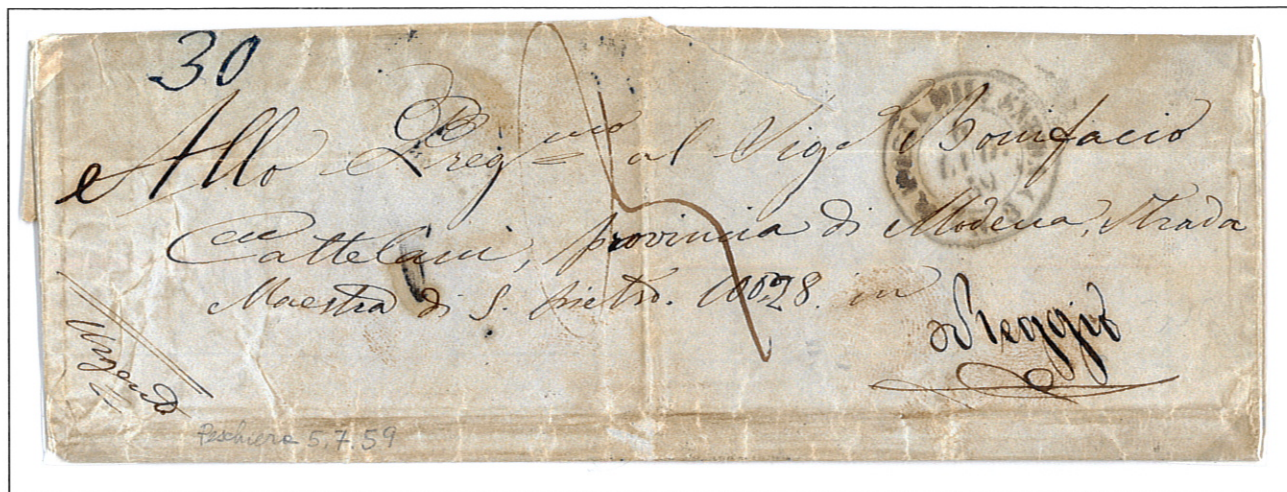 30
Allo Preg.mo al Sig.r Bonifacio
Cattelani, provincia di Modena, Strada
Maestra di S. pietro. No. 28. in
Reggio
Urgente
Peschiera 5.7.59